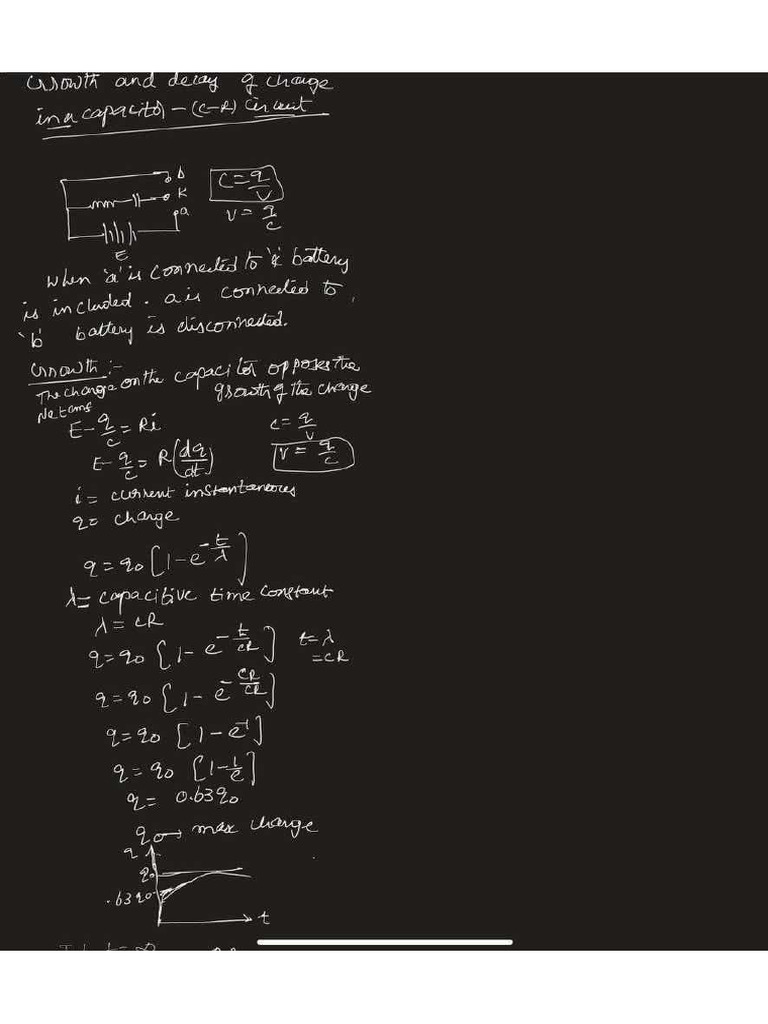 Growth and decay of charge
in a capacitor - (C-R) Circuit
b
K
a
E
C = q/V
V = q/C
When 'a' is connected to 'k' battery
is included. a is connected to
'b' battery is disconnected.
Growth :-
The charge on the capacitor opposes the
growth of the charge
E - q/C = Ri
C = q/V
E - q/C = R(dq/dt)
V = q/C
i = current instantaneous
q = charge
q = q0 [1 - e^-t/λ]
λ = capacitive time constant
λ = CR
q = q0 [1 - e^-t/CR]
t = λ
= CR
q = q0 [1 - e^-CR/CR]
q = q0 [1 - e^-1]
q = q0 [1 - 1/e]
q = 0.63q0
q0 → max charge
q
q0
.63q0
t